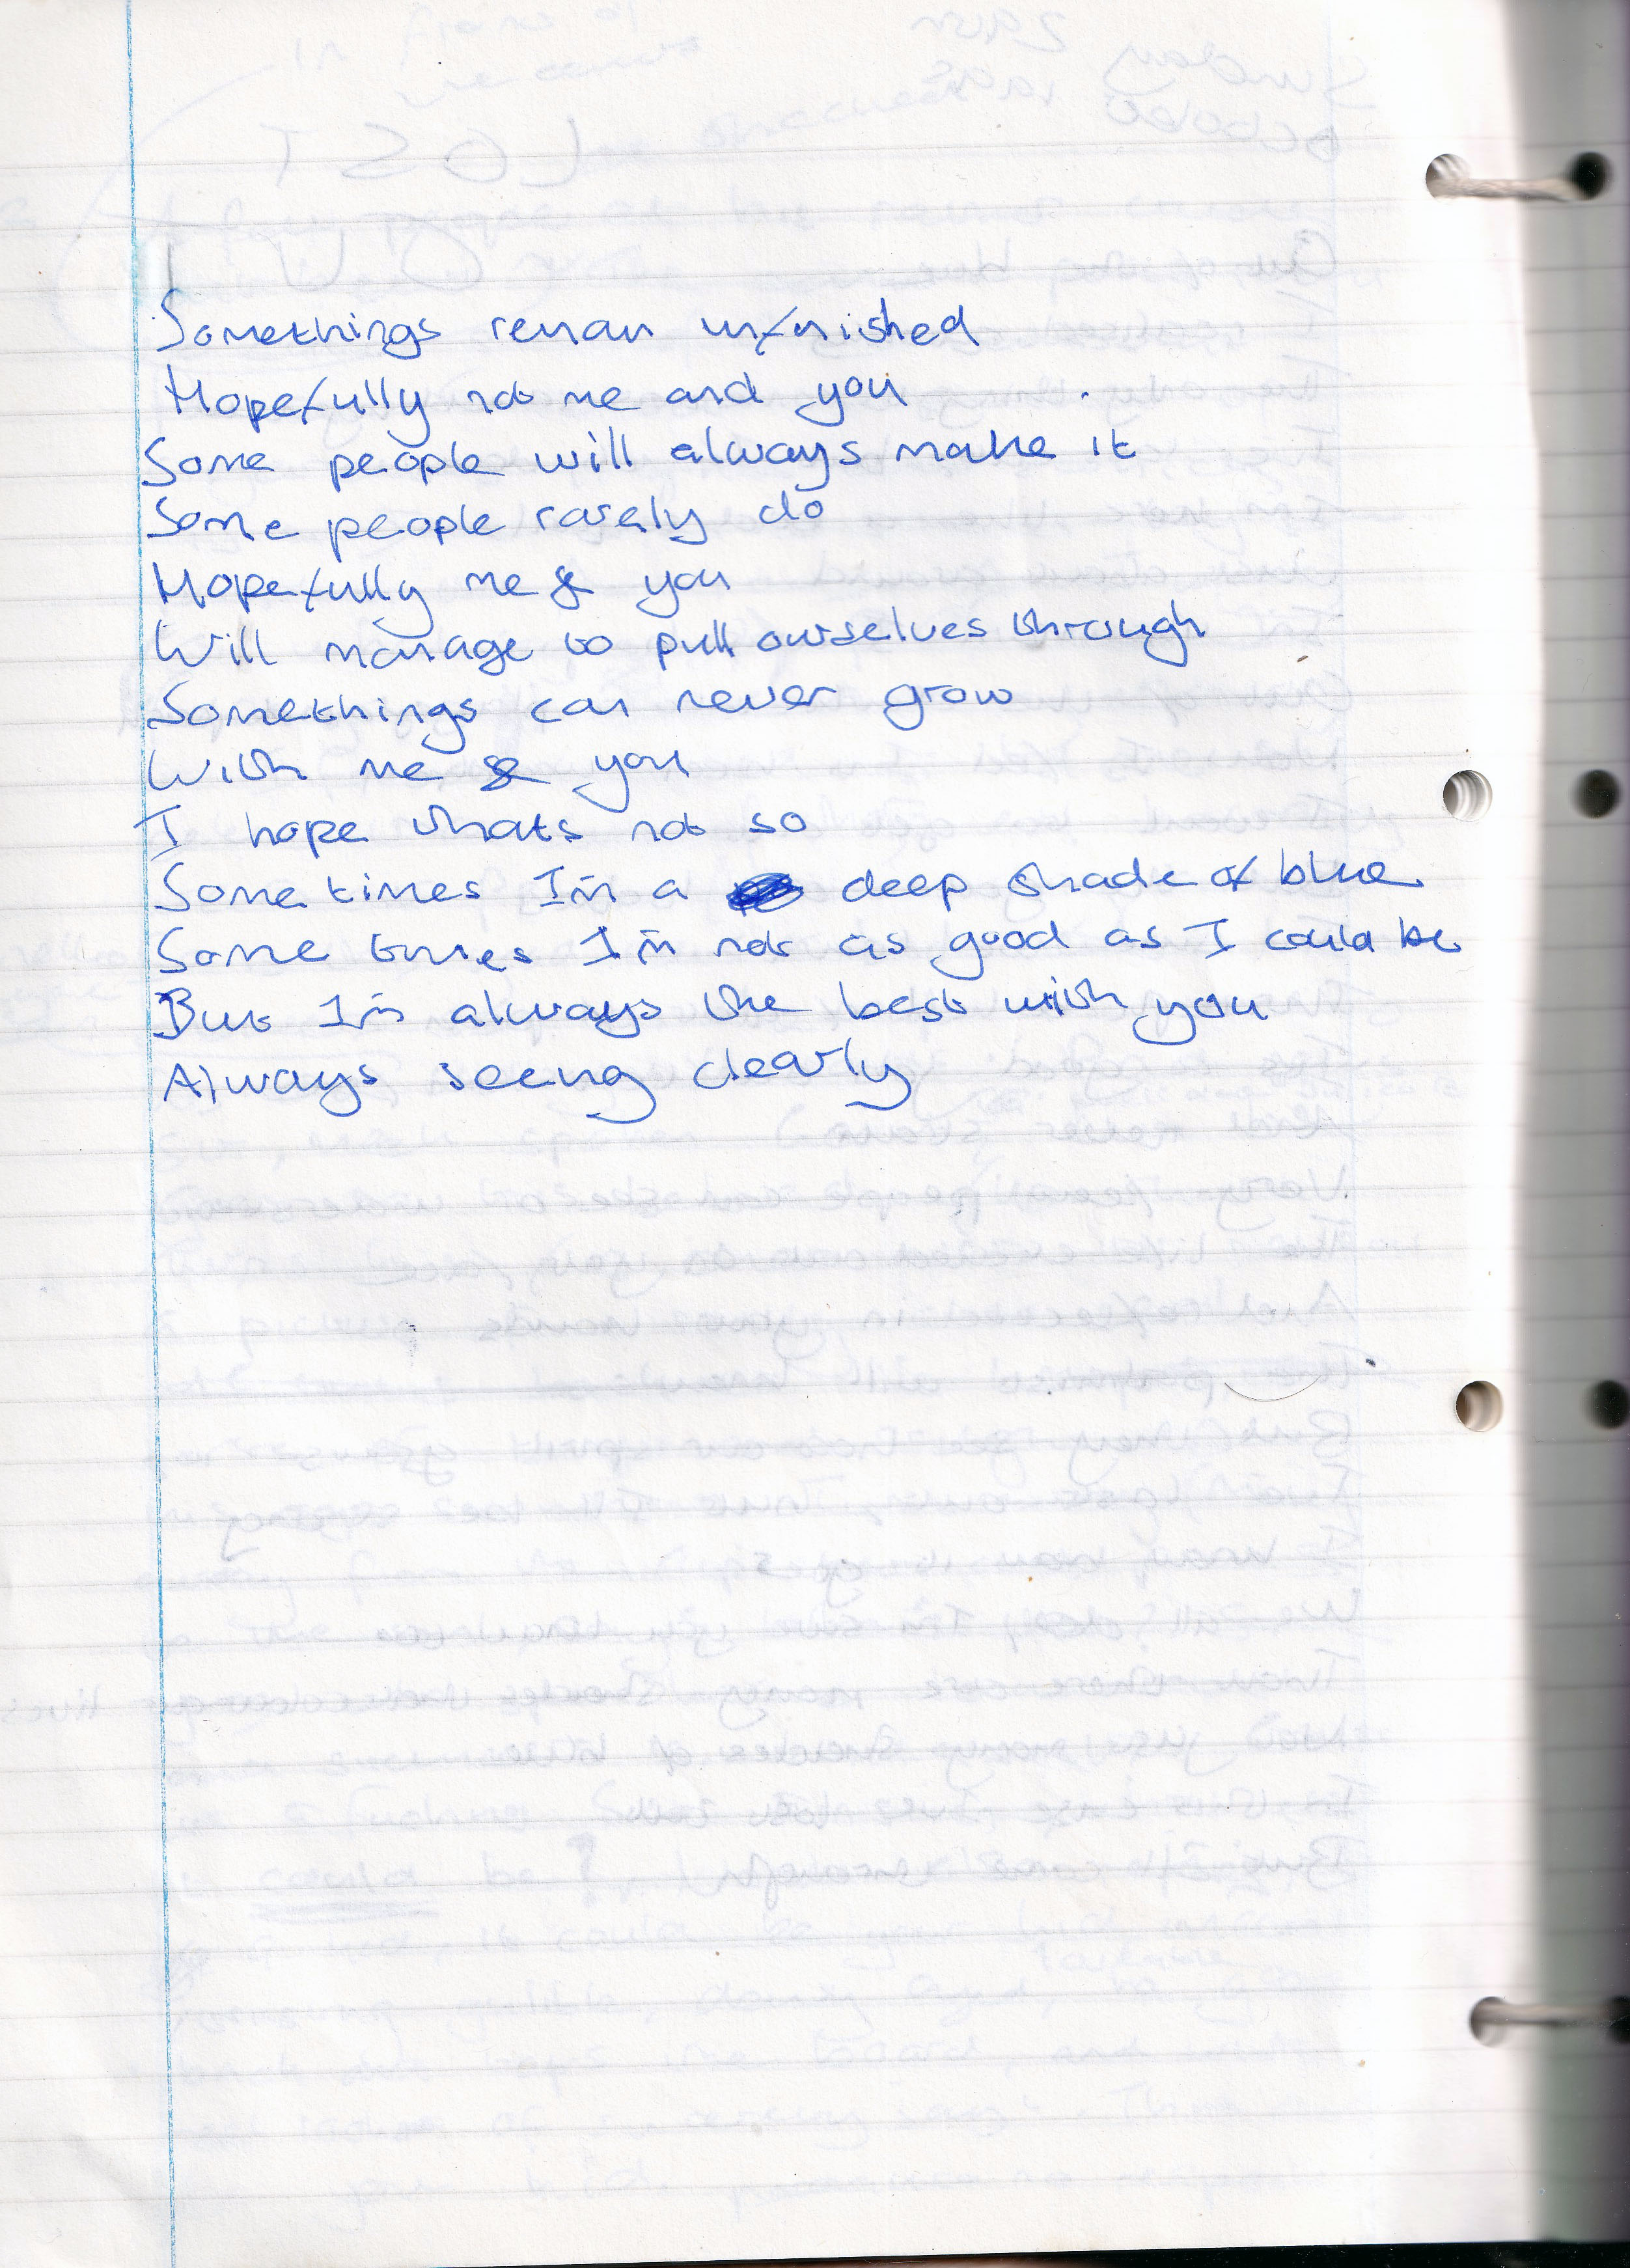 Somethings remain unfinished
Hopefully not me and you
Some people will always make it
Some people rarely do
Hopefully me & you
Will manage to pull ourselves through
Somethings can never grow
With me & you
I hope thats not so
Sometimes I'm a deep shade of blue
Some times I'm not as good as I could be
But I'm always the best with you
Always seeing clearly